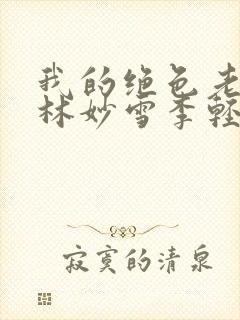 我的绝色老
林妙雪季轻
寂寞的清泉